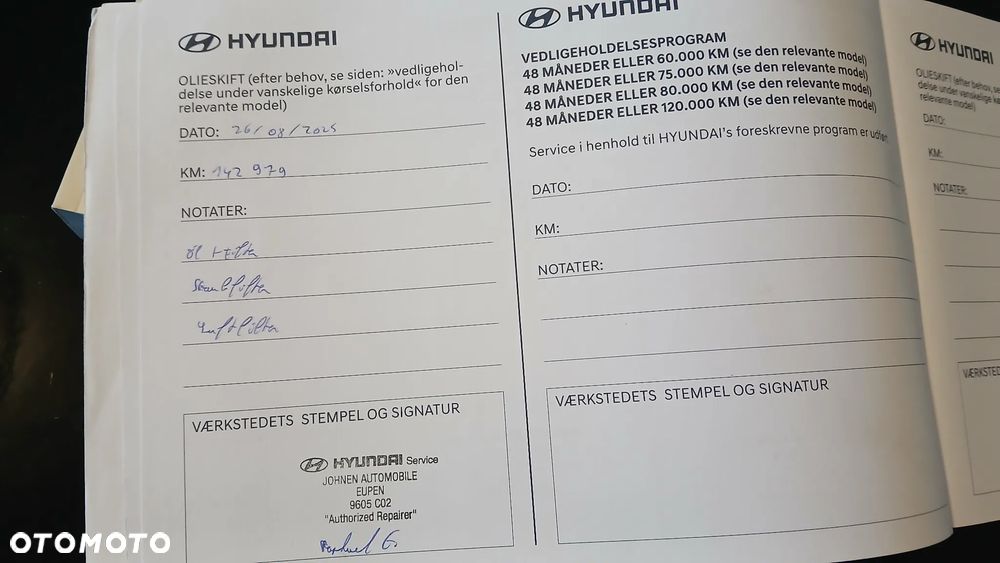 HYUNDAI
OLIESKIFT (efter behov, se siden: »vedligehol-
delse under vanskelige kørselsforhold« for den
relevante model)
DATO: 26/08/2025
KM: 142 979
NOTATER:
Öl + Filter
Staubfilter
Luftfilter
VÆRKSTEDETS STEMPEL OG SIGNATUR
HYUNDAI Service
JOHNEN AUTOMOBILE
EUPEN
9605 C02
"Authorized Repairer"
HYUNDAI
VEDLIGEHOLDELSESPROGRAM
48 MÅNEDER ELLER 60.000 KM (se den relevante model)
48 MÅNEDER ELLER 75.000 KM (se den relevante model)
48 MÅNEDER ELLER 80.000 KM (se den relevante model)
48 MÅNEDER ELLER 120.000 KM (se den relevante model)
Service i henhold til HYUNDAI's foreskrevne program er udført
DATO:
KM:
NOTATER:
VÆRKSTEDETS STEMPEL OG SIGNATUR
HYUNDAI
OLIESKIFT (efter behov, se
delse under vanskelige
relevante model)
DATO:
KM:
NOTATER:
OTOMOTO